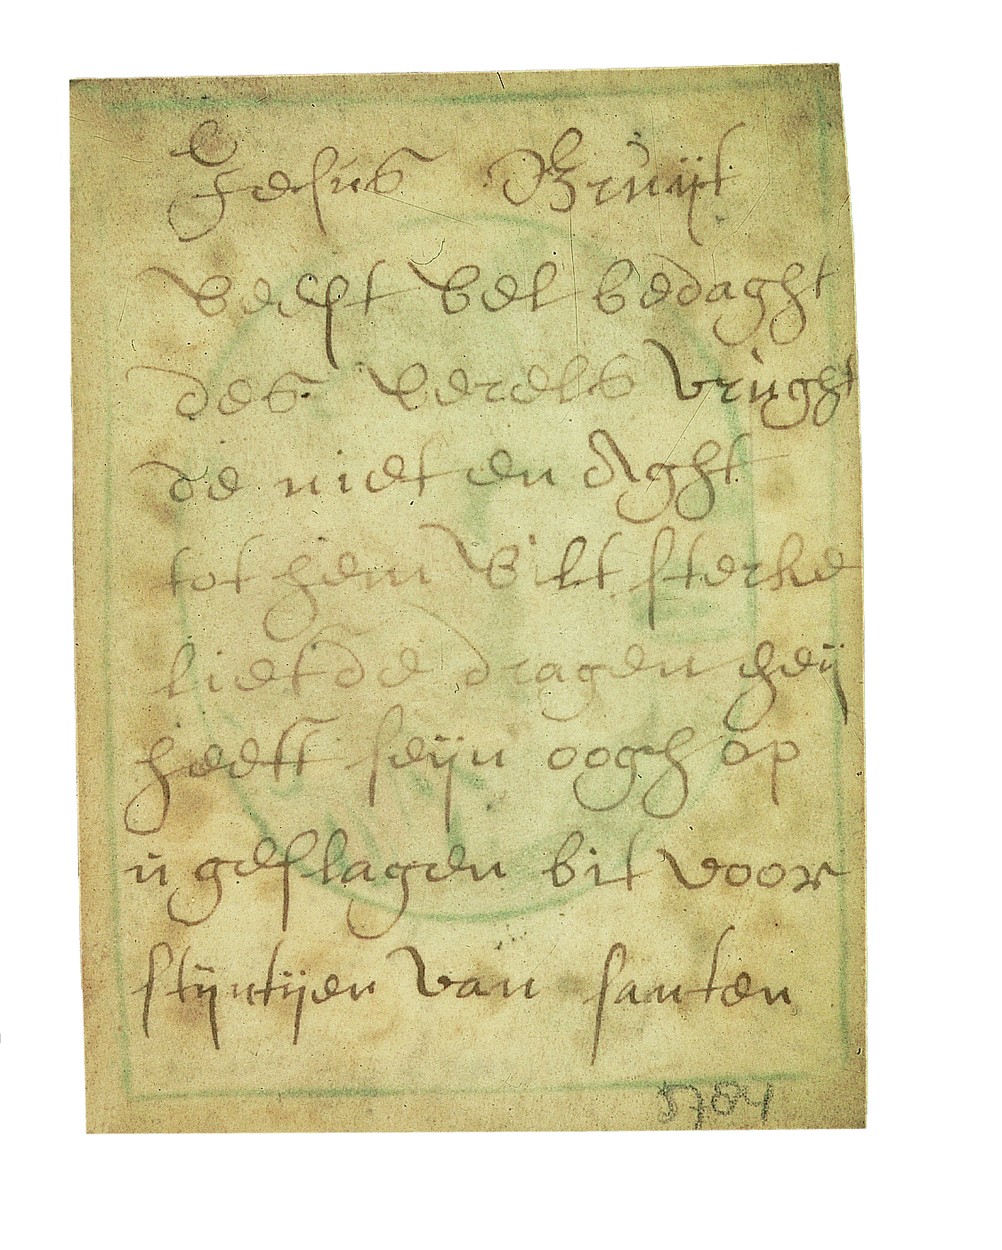 Jesus Bruijt
Weest wel bedaght
des werels vrught
de niet en Aght
tot hem wilt sterke
liefde dragen heij
heeft seijn oogh op
ú geslagen bit voor
stijntijen van santen
5704